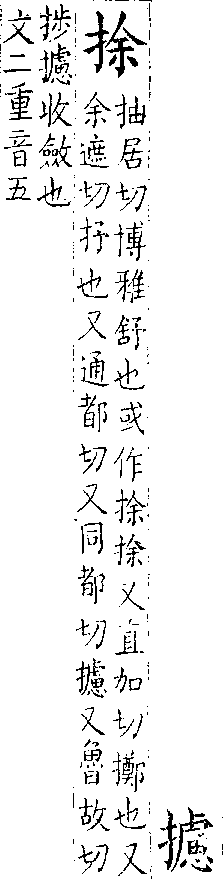 攄
捈
抽居切博雅舒也或作捈捈又直加切擲也又
余遮切抒也又通都切又同都切攄又魯故切
捗攄收斂也
文二重音五